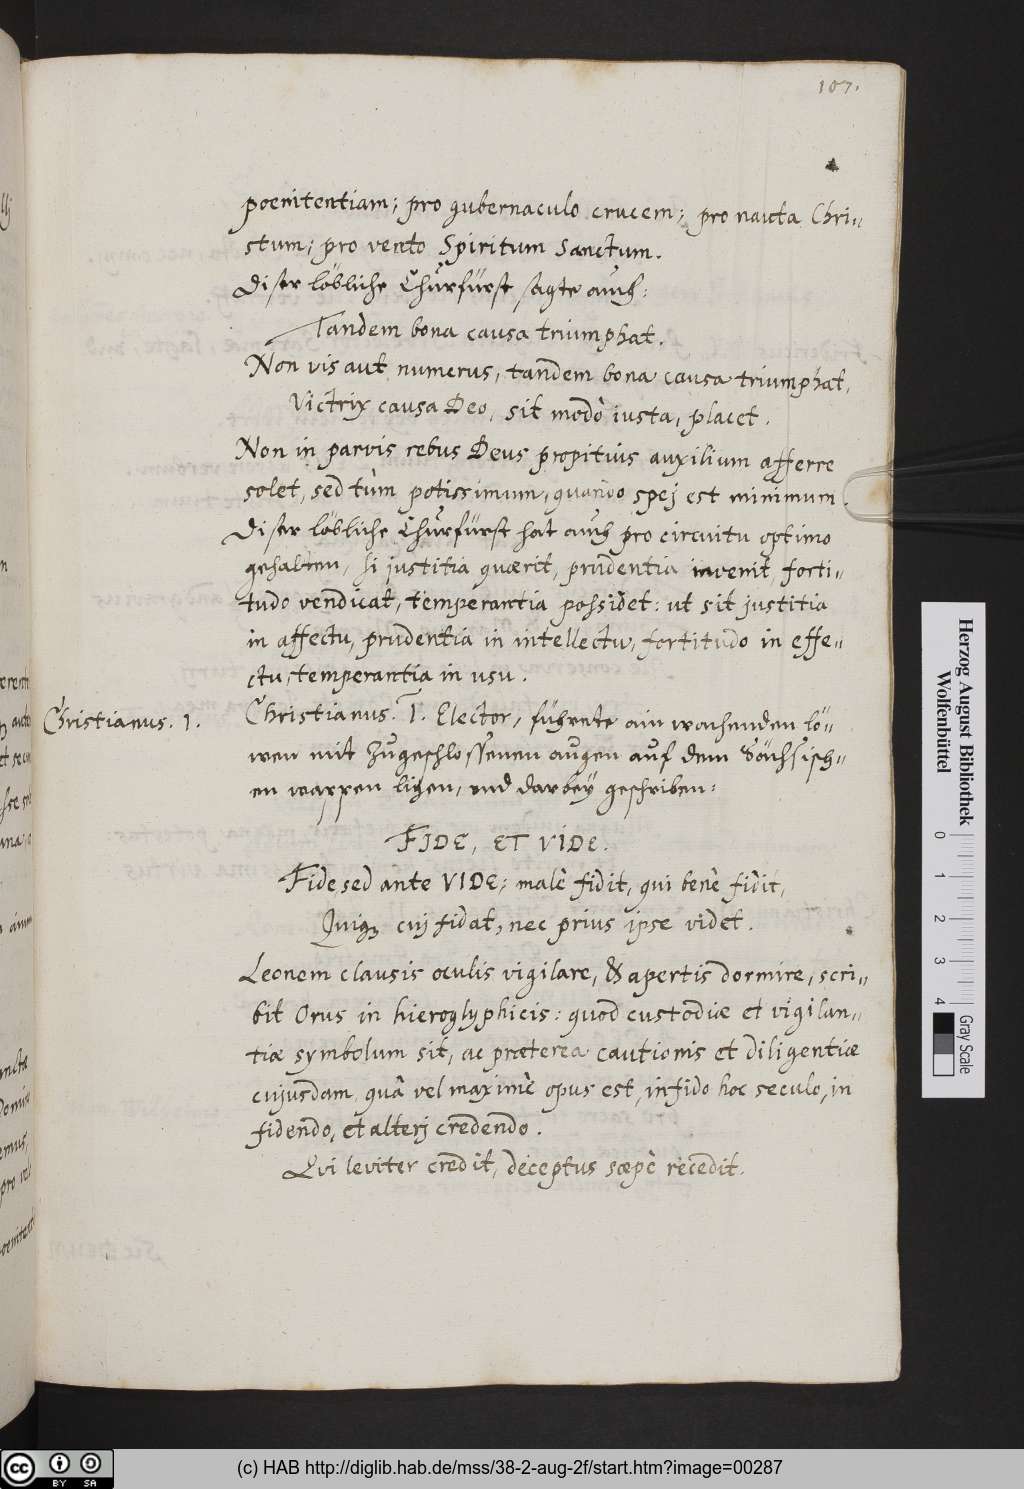 107.
poenitentiam; pro gubernaculo crucem; pro nauta Chri=
stum; pro vento Spiritum Sanctum.
Diser löbliche Churfürst sagte auch:
Tandem bona causa triumphat.
Non vis aut numerus, tandem bona causa triumphat,
Victrix causa Deo, sit modò iusta, placet.
Non in parvis rebus Deus propitius auxilium afferre
solet, sed tùm potissimum, quando spej est minimum.
Diser löbliche Churfürst hat auch pro circuitu optimo
gehalten, si justitia quærit, prudentia invenit, forti=
tudo vendicat, temperantia possidet: ut sit justitia
in affectu, prudentia in intellectu, fortitudo in effe=
ctu, temperantia in usu.
Christianus. 1.
Christianus. I. Elector, führete ain wachenden lö=
wen mit zugeschlossenen augen auf dem Sächsisch=
en wappen ligen, und darbeÿ geschriben:
FIDE, ET VIDE.
Fide sed ante VIDE; malè fidit, qui benè fidit,
Quiq; cuj fidat, nec prius ipse videt.
Leonem clausis oculis vigilare, & apertis dormire, scri=
bit Orus in hieroglyphicis: quod custodiæ et vigilan=
tiæ symbolum sit, ac præterea cautionis et diligentiæ
cujusdam, quâ vel maximè opus est, infido hoc seculo, in
fidendo, et alterj credendo.
Qui leviter credit, deceptus sæpè recedit.
Herzog August Bibliothek
Wolfenbüttel
0 1 2 3 4
Gray Scale
cc BY SA
(c) HAB http://diglib.hab.de/mss/38-2-aug-2f/start.htm?image=00287